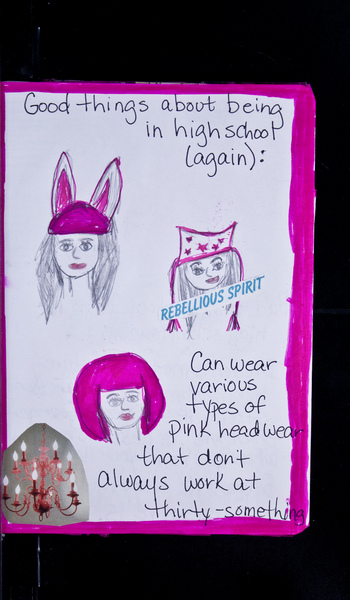 Good things about being
in high school
(again):
REBELLIOUS SPIRIT
Can wear
various
types of
pink headwear
that dont
always work at
thirty-something